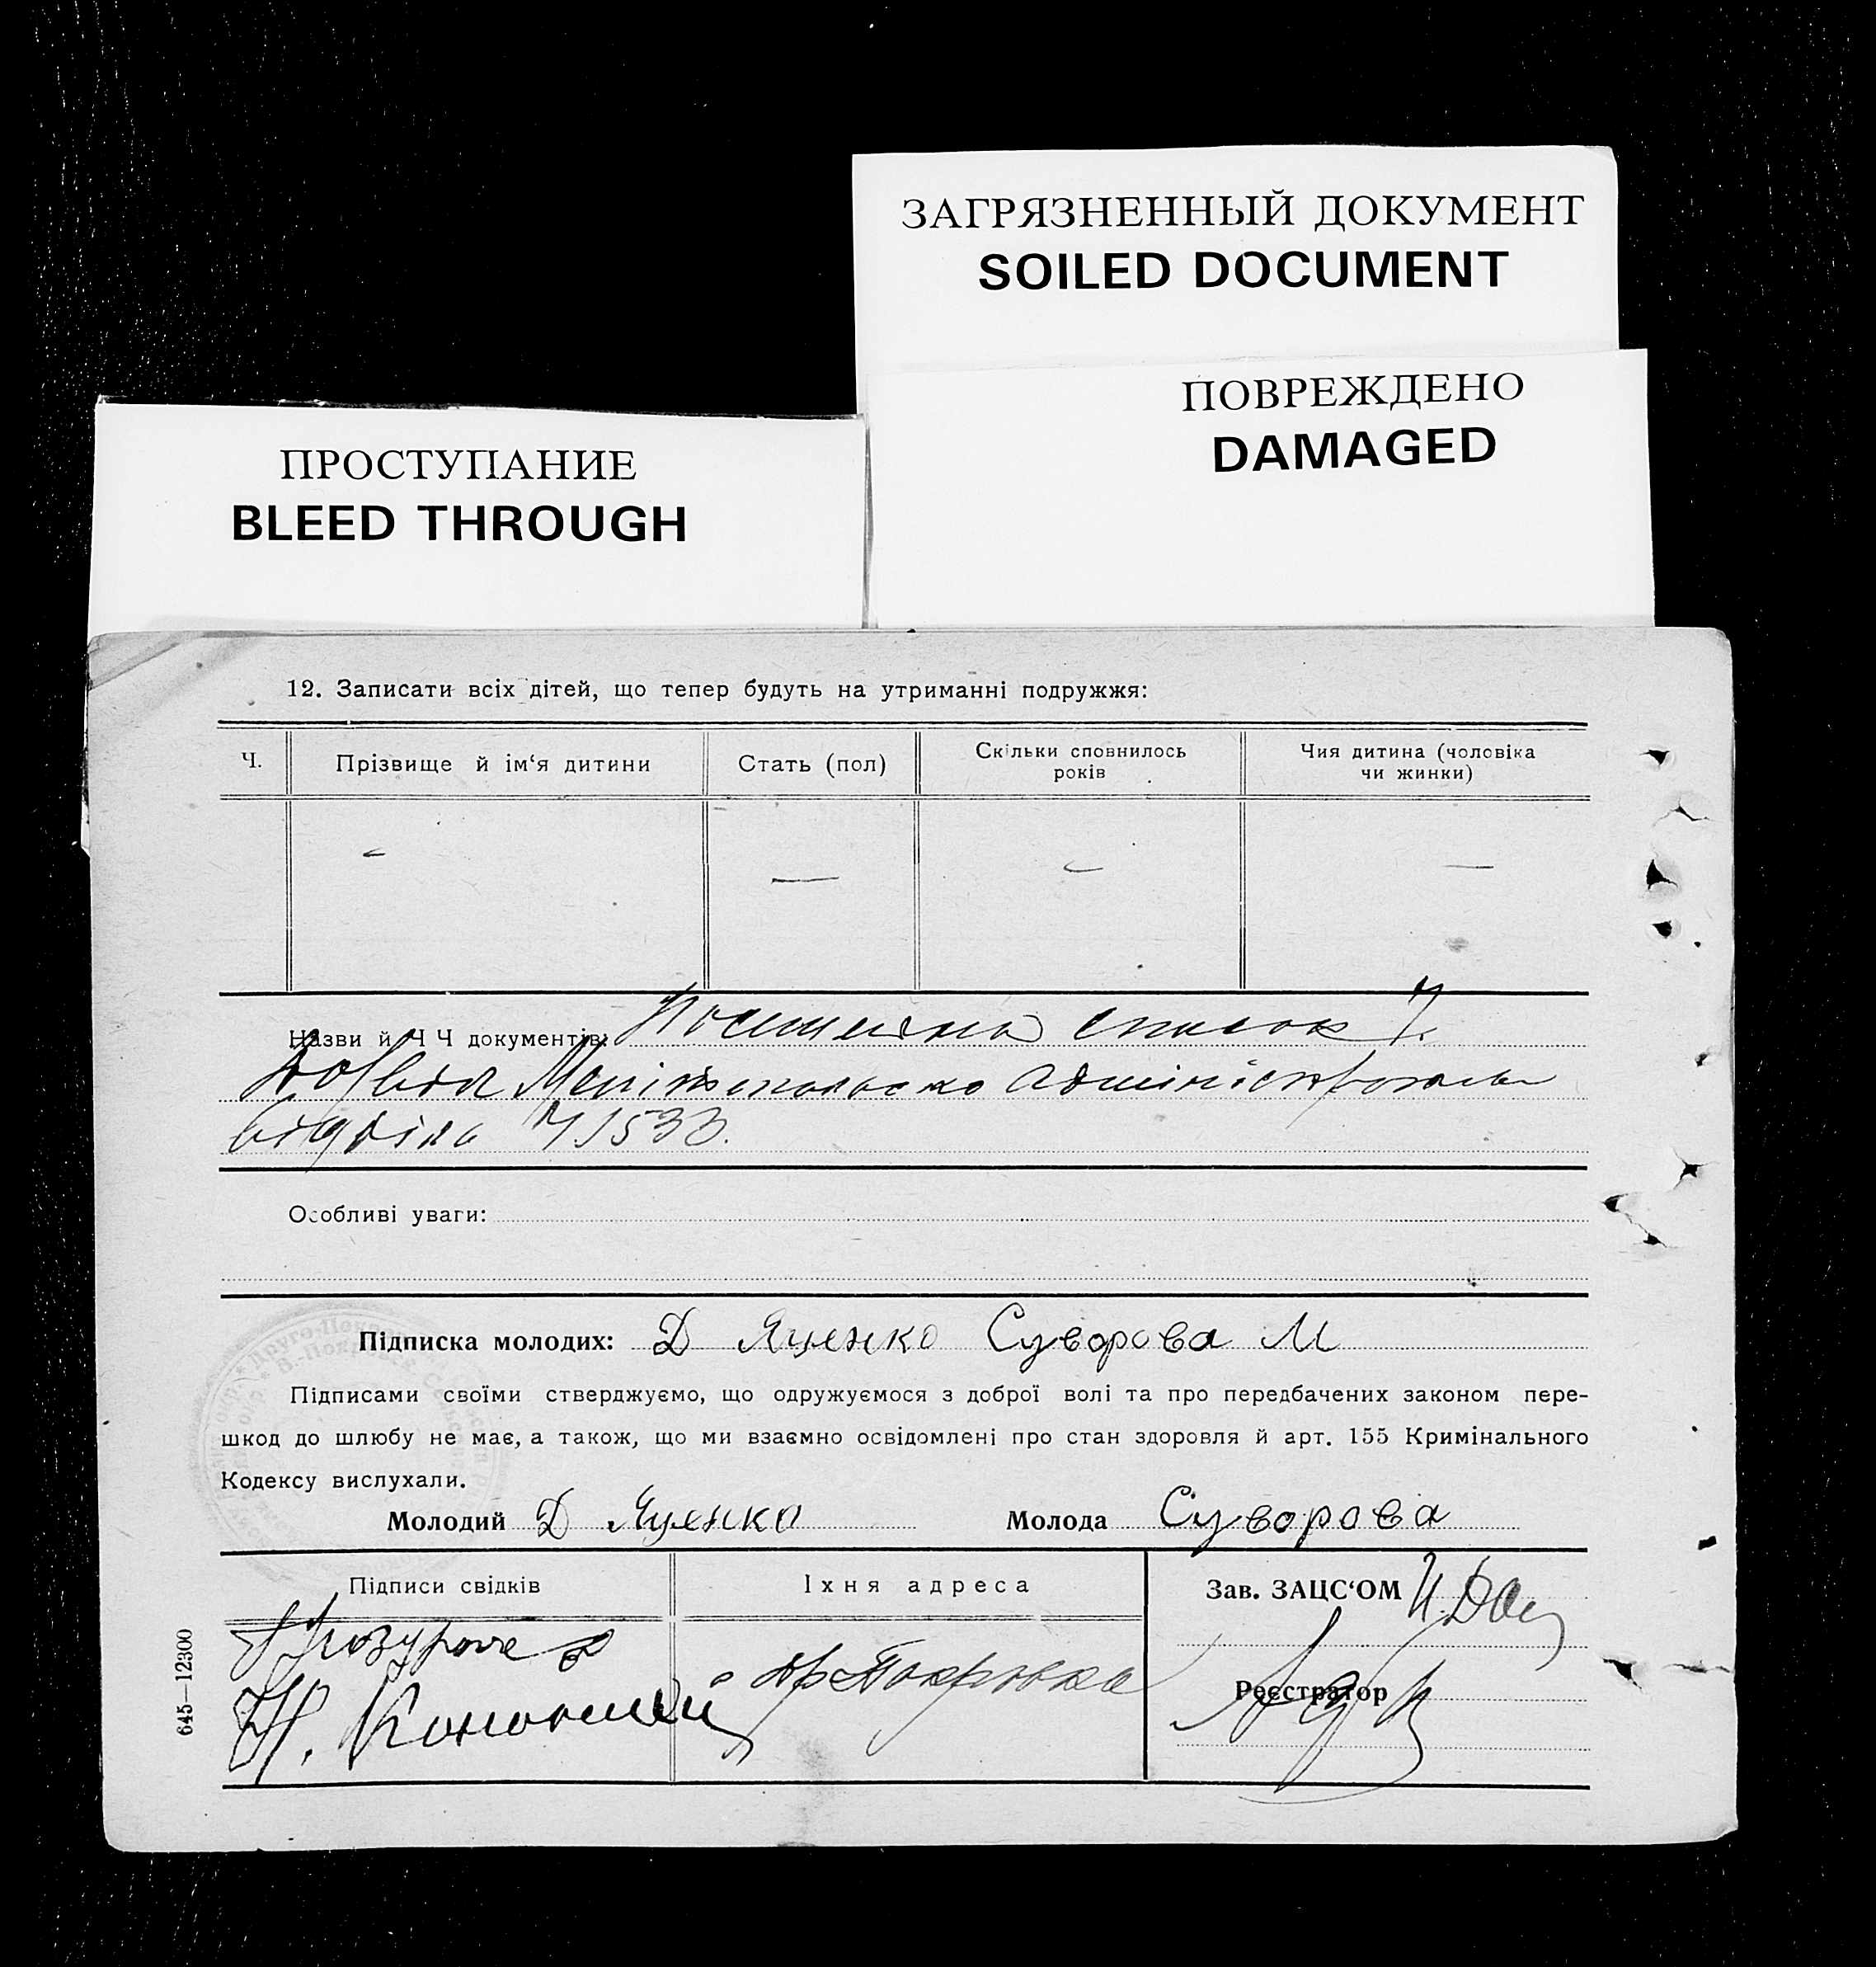 ЗАГРЯЗНЕННЫЙ ДОКУМЕНТ
SOILED DOCUMENT
ПОВРЕЖДЕНО
DAMAGED
ПРОСТУПАНИЕ
BLEED THROUGH
12. Записати всіх дітей, що тепер будуть на утриманні подружжя:
Ч. Прізвище й ім‘я дитини Стать (пол) Скільки сповнилось років Чия дитина (чоловіка чи жинки)
— — — —
Назви й Ч Ч документів: список
Дозвіл адміністративн
відділа 1533.
Особливі уваги:
Підписка молодих: Д Яценко Суворова М
Підписами своїми стверджуємо, що одружуємося з доброї волі та про передбачених законом пере-
шкод до шлюбу не має, а також, що ми взаємно освідомлені про стан здоровля й арт. 155 Кримінального
Кодексу вислухали.
Молодий Д Яценко Молода Суворова
Підписи свідків Їхня адреса Зав. ЗАЦС‘ОМ
Реєстратор
645—12300